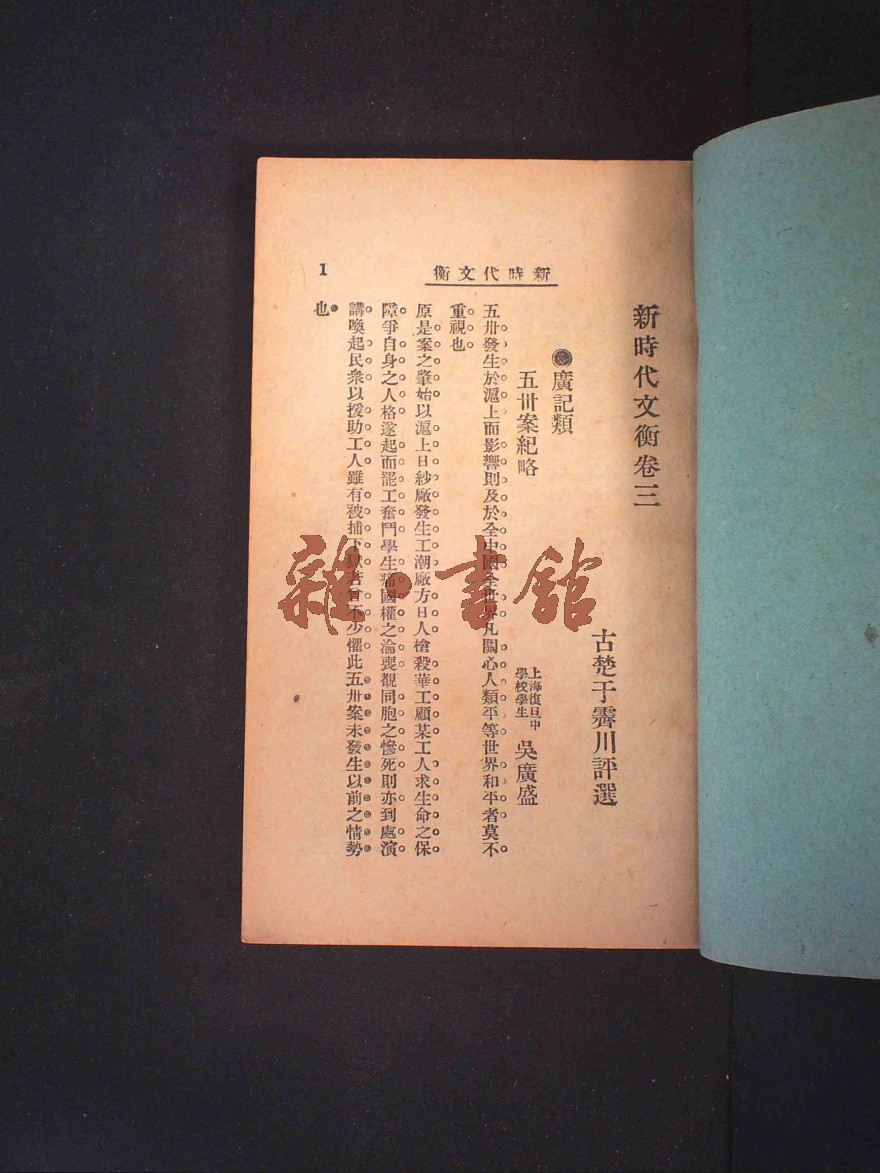 新時代文衡卷三
古楚于霽川評選
廣記類
五卅案紀略
上海復旦中
學校學生
吳廣盛
五卅發生於滬上而影響則及於全中國全世界凡關心人類平等世界和平者莫不
重視也
原是案之肇始以滬上日紗廠發生工潮廠方日人槍殺華工顧某工人求生命之保
障爭自身之人格遂起而罷工奮鬥學生痛國權之淪喪覩同胞之慘死則亦到處演
講喚起民衆以援助工人雖有被捕下獄者曾不少懼此五卅案未發生以前之情勢
也
新時代文衡
1
雜·書館